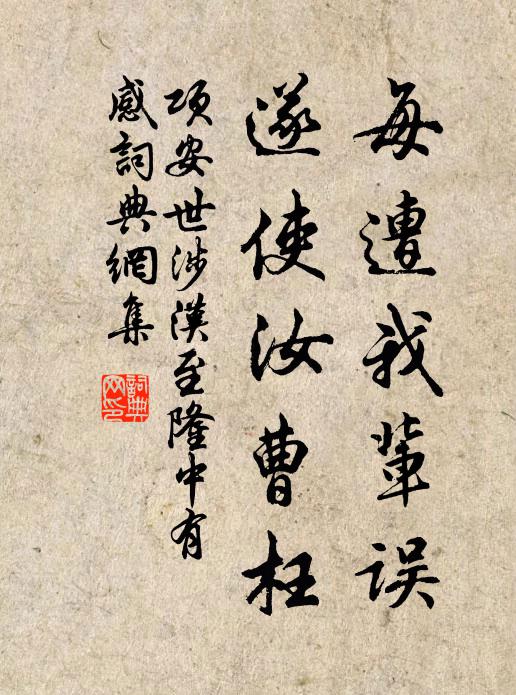 每遭我辈误
遂使汝曹枉
项安世涉漢至隆中有
感詞典網集
詞典
网印